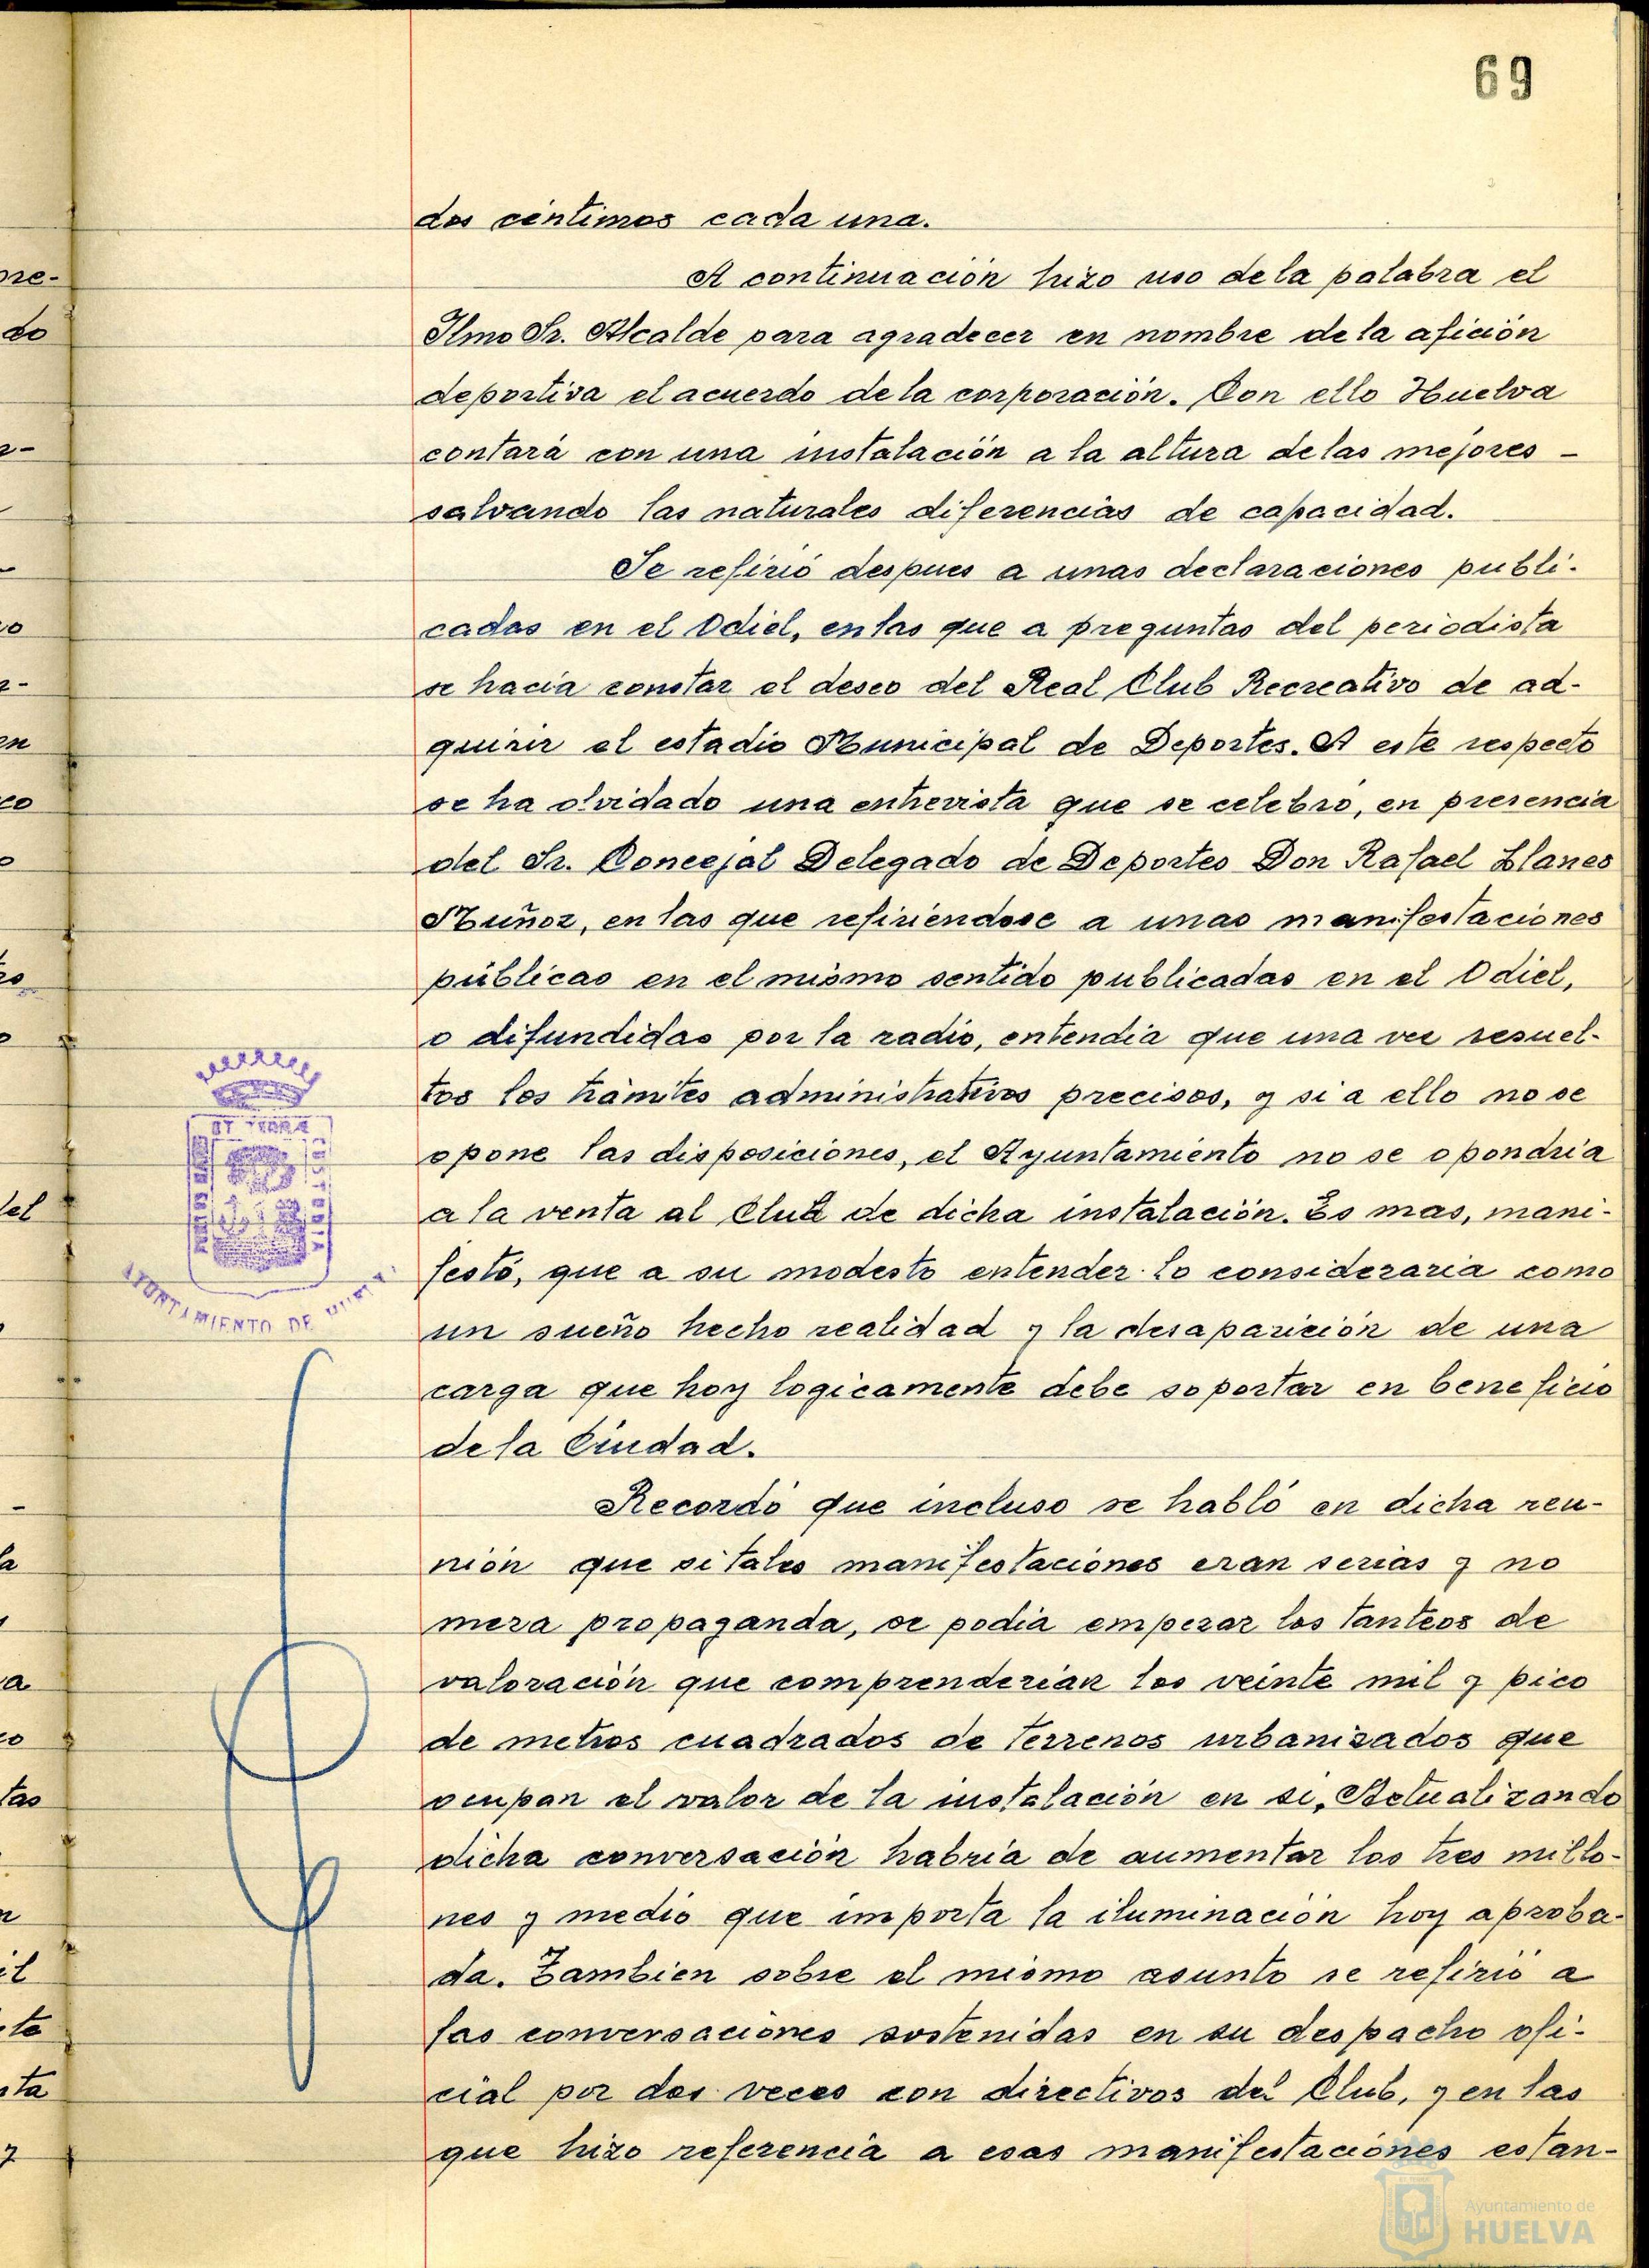 69
dos céntimos cada una.
A continuación hizo uso de la palabra el
Ilmo Sr. Alcalde para agradecer en nombre de la afición
deportiva el acuerdo de la corporación. Con ello Huelva
contará con una instalación a la altura de las mejores -
salvando las naturales diferencias de capacidad.
Se refirió despues a unas declaraciones publi-
cadas en el Odiel, en las que a preguntas del periodista
se hacia constar el deseo del Real Club Recreativo de ad-
quirir el estadio Municipal de Deportes. A este respecto
se ha olvidado una entrevista que se celebró, en presencia
del Sr. Concejal Delegado de Deportes Don Rafael Llanes
Muñoz, en las que refiriéndose a unas manifestaciones
públicas en el mismo sentido publicadas en el Odiel,
o difundidas por la radio, entendia que una vez resuel-
tos los trámites administrativos precisos, y si a ello no se
opone las disposiciones, el Ayuntamiento no se opondria
a la venta al Club de dicha instalación. Es mas, mani-
festó, que a su modesto entender lo consideraria como
un sueño hecho realidad y la desaparición de una
carga que hoy logicamente debe soportar en beneficio
de la Ciudad.
Recordó que incluso se habló en dicha reu-
nión que si tales manifestaciones eran serias y no
mera propaganda, se podia empezar los tanteos de
valoración que comprenderian los veinte mil y pico
de metros cuadrados de terrenos urbanizados que
ocupan el valor de la instalación en si, Actualizando
dicha conversación habria de aumentar los tres millo-
nes y medio que importa la iluminación hoy aproba-
da. Tambien sobre el mismo asunto se refirió a
las conversaciones sostenidas en su despacho ofi-
cial por dos veces con directivos del Club, y en las
que hizo referencia a esas manifestaciones estan-
AYUNTAMIENTO DE HUELVA
Ayuntamiento de
HUELVA